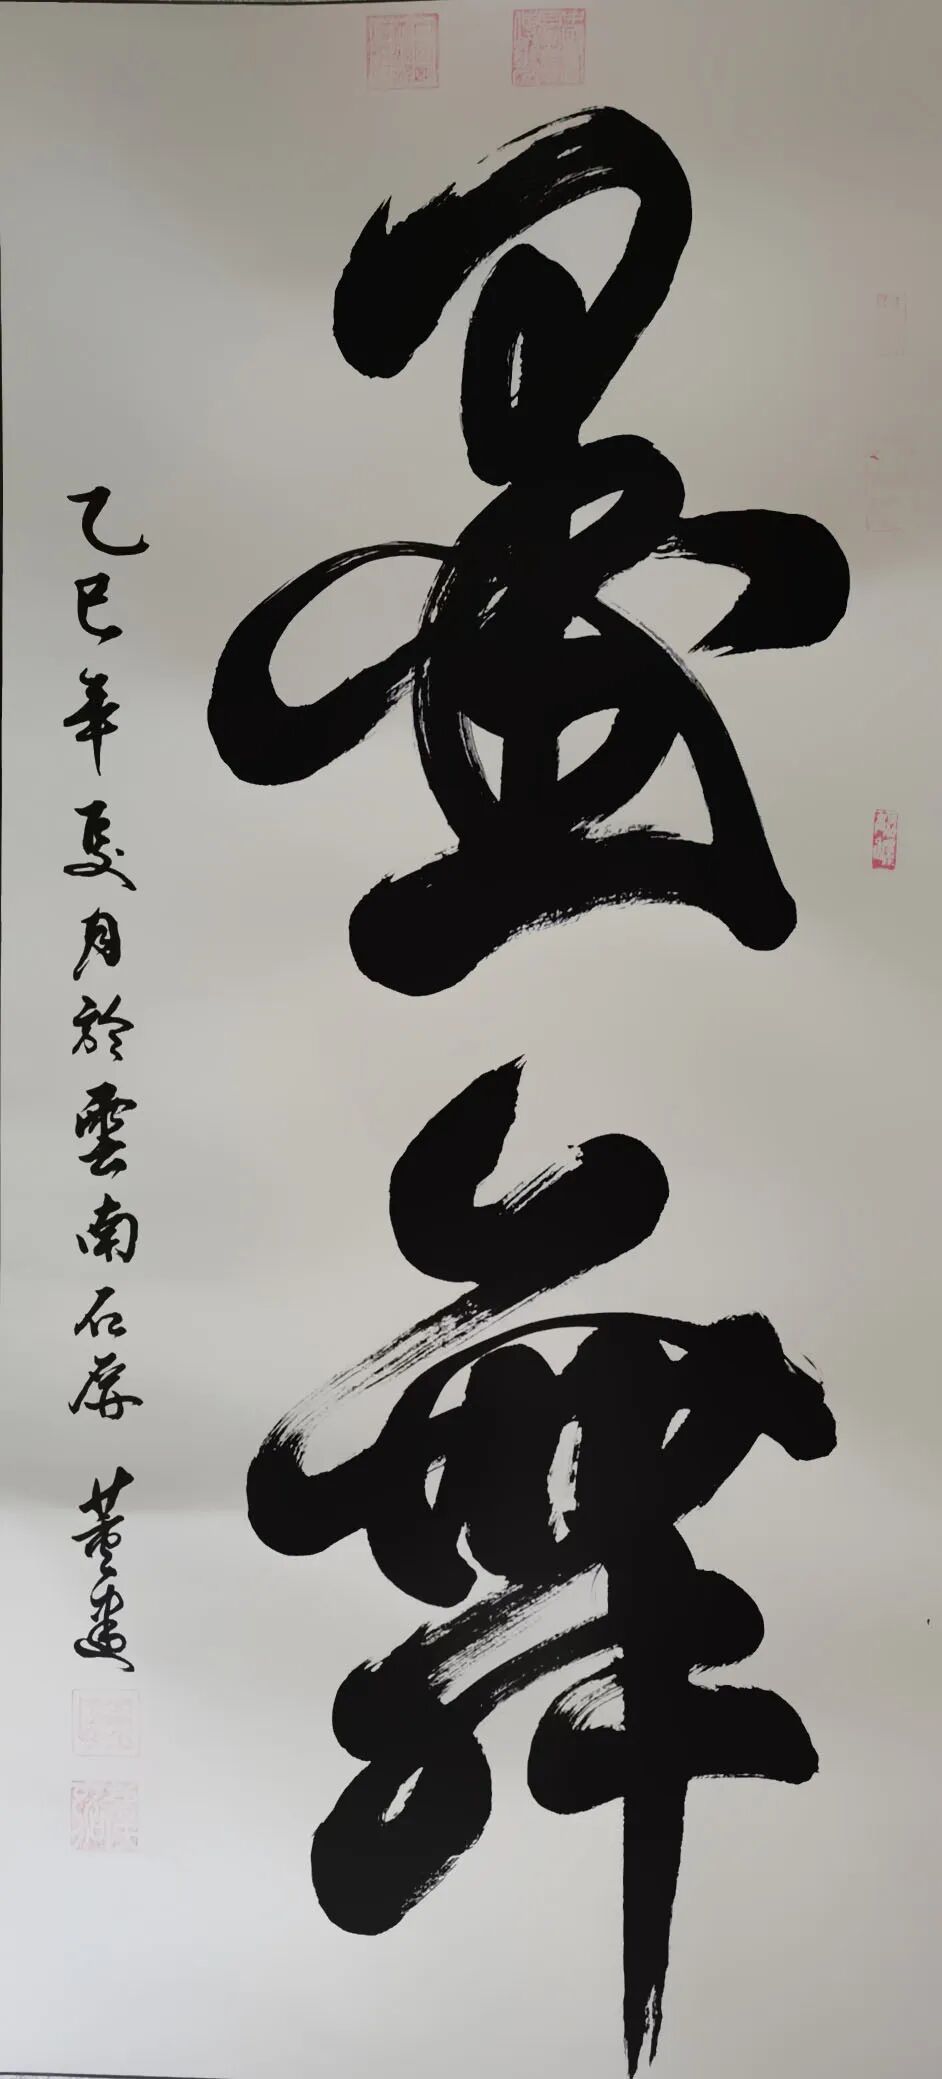 墨舞
乙巳年夏月於雲南石屏 董